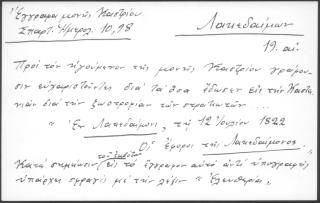 Ἔγγραφα μονῆς Καστρίου
Σπαρτ. Ἡμερολ. 10, 98
Λακεδαίμων
19. αἰ.
Πρός τόν ἡγούμενον τῆς μονῆς Καστρίου γράφου-
σιν εὐχαριστοῦντες διά τά ὅσα ἔδωσεν εἰς τήν
διά τήν ζωοτροφίαν τῶν στρατιωτῶν ...
" Ἐν Λακεδαίμονι, τῇ 12 Ἰουλίου 1822
Οἱ ἔφοροι τῆς Λακεδαίμονος "
Κατά σημείωσιν τοῦ ἐκδότου εἰς τό ἔγγραφον αὐτό ἀντί ὑπογραφῆς
ὑπάρχει σφραγίς μέ τήν λέξιν " Ἐλευθερία "